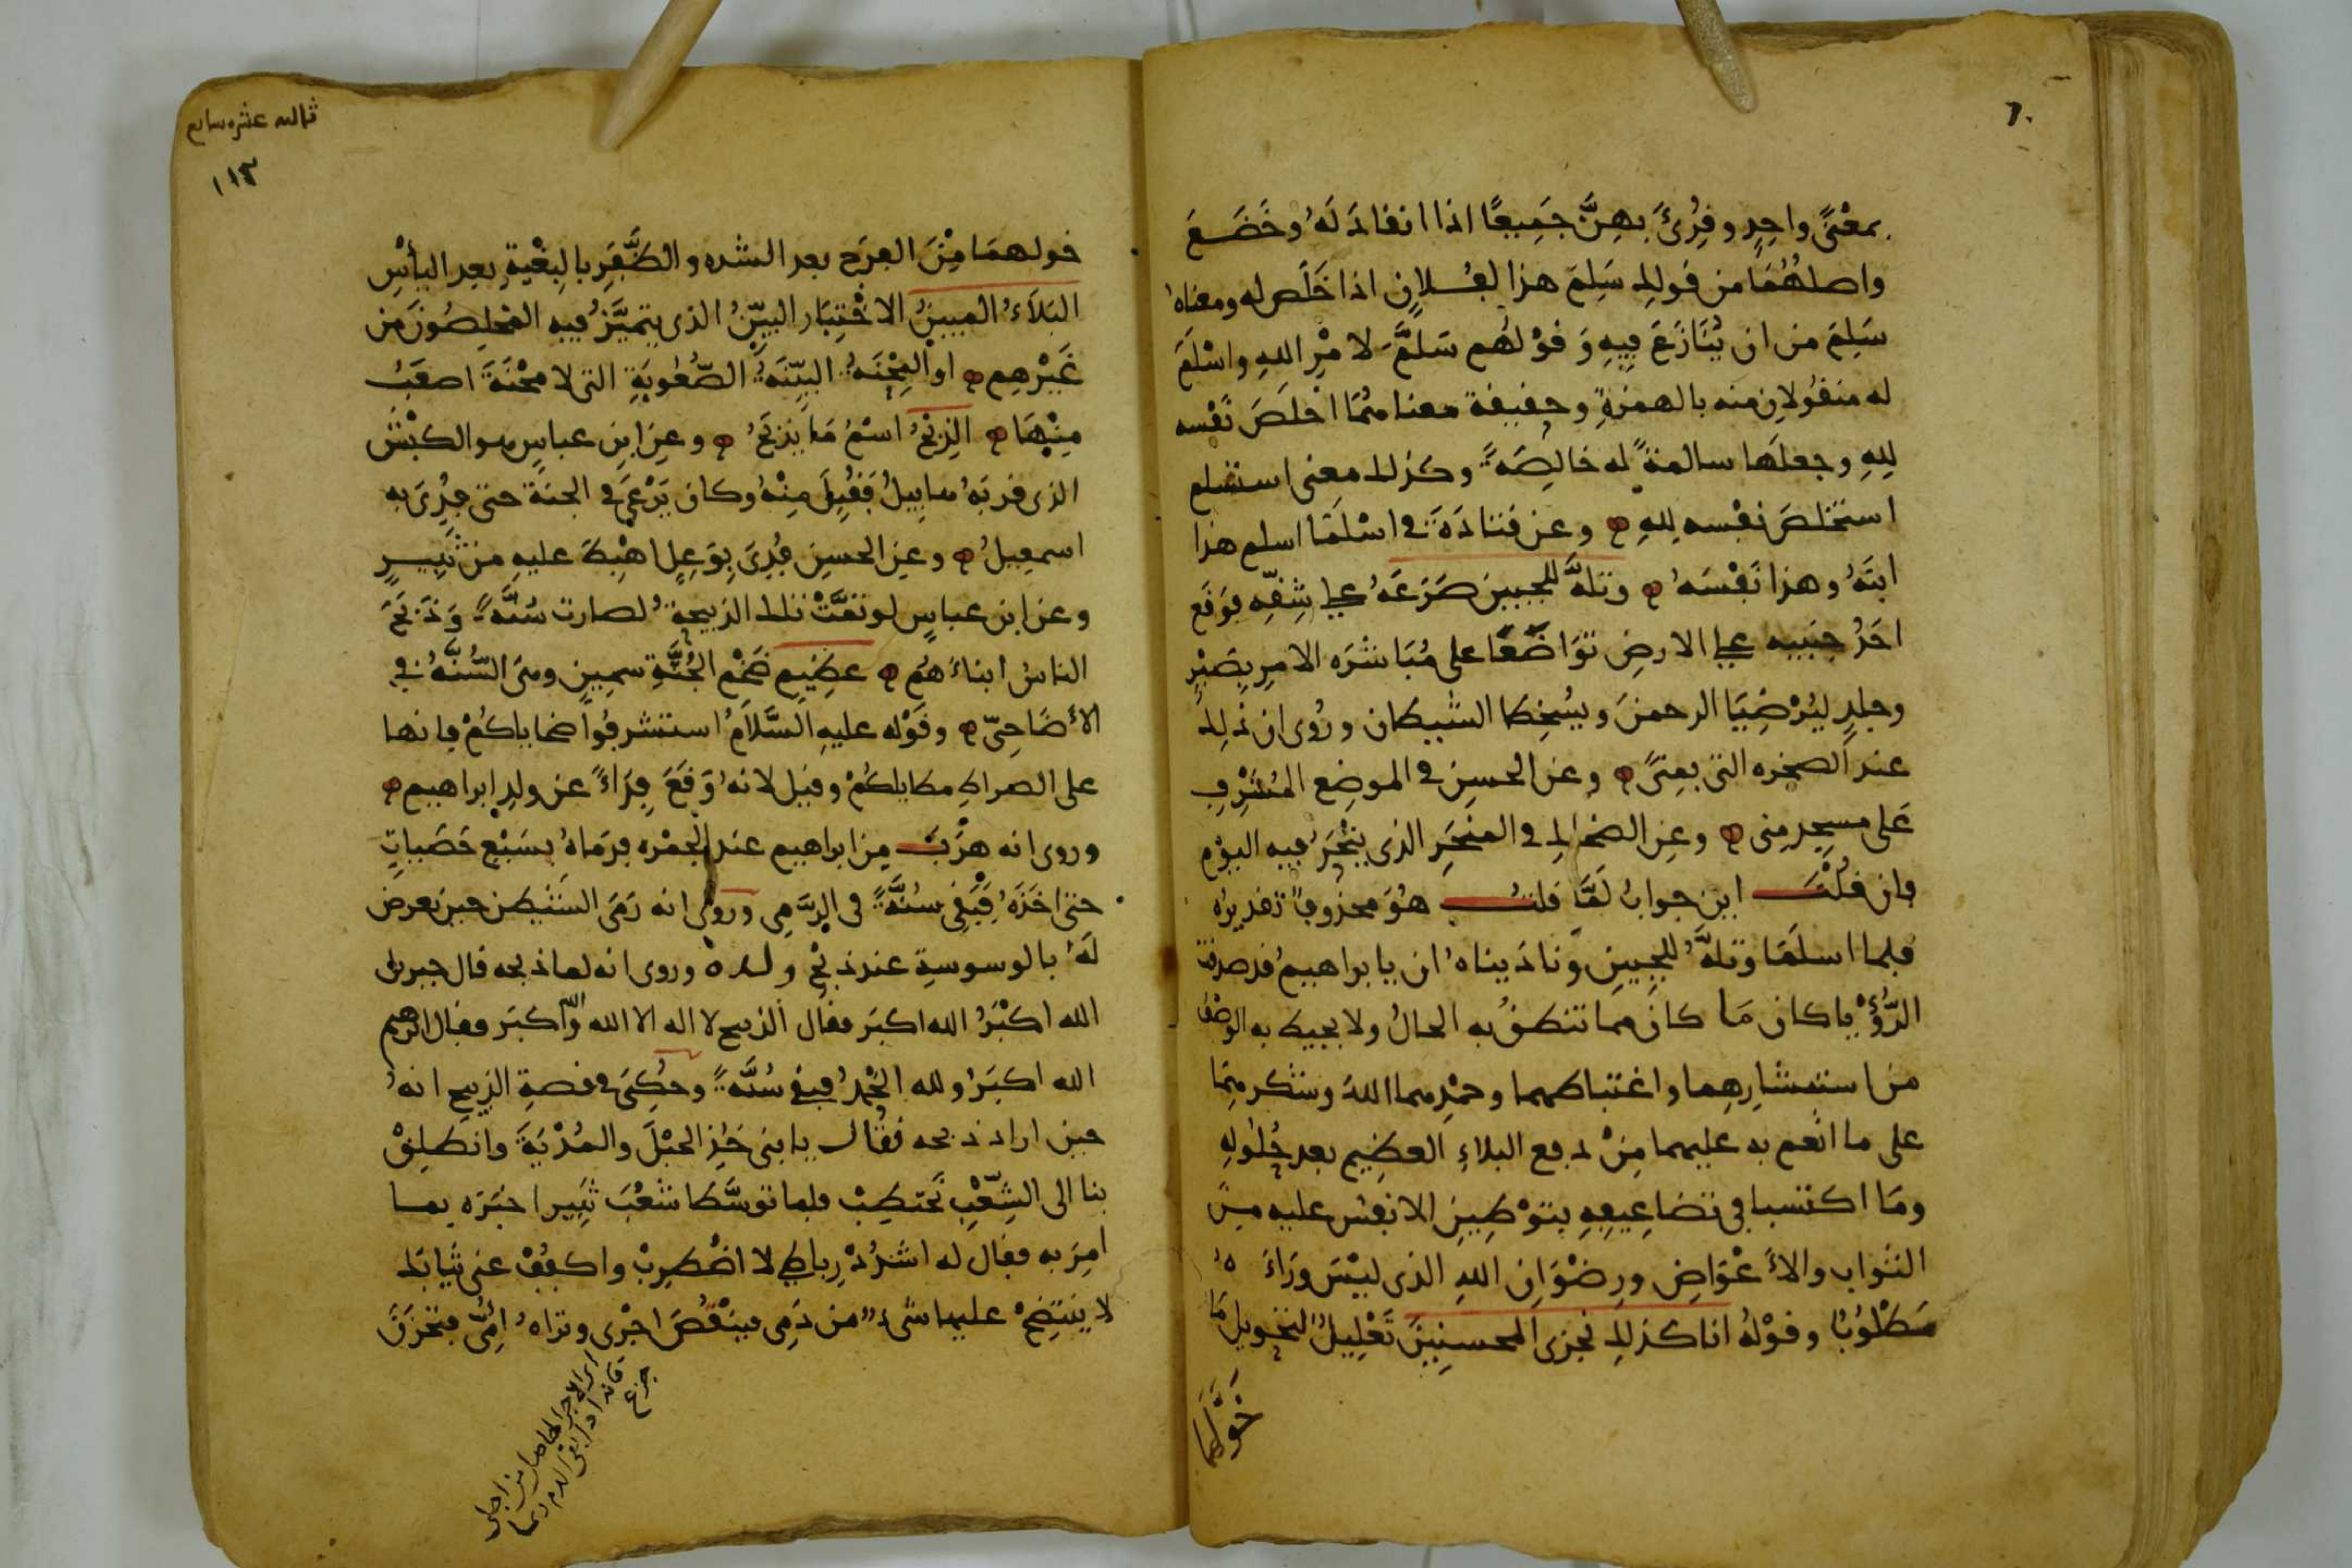 ٦٠
بمعْنًى واحِدٍ وقُرِئَ بهِنَّ جَمِيعًا اذا انقادَ لَهُ وخَضَعَ
واصلهُمَا من قولك سَلِمَ هذا لفُلانٍ اذا خَلَص له ومعناه
سَلِمَ من ان يُنَازَعَ فِيهِ وَقوْلهُم سَلَّمَ لامْرِ اللهِ واسْلَمَ
له منقُولانِ منه بالهمزةِ وحقيقة معناهُمَا اخلَصَ نَفْسه
لِلهِ وجعلَها سالمةً له خالِصَةً وكذلك معنى استسلم
استخلصَ نفسه لِلهِ وعن قتادَةَ في اسْلَمَا اسلم هذا
ابنَهُ وهذا نَفْسَهُ وتلَّهُ للجبين صَرَعَهُ على شِقِّهِ فوَقَع
احَدُ جنبيه على الارضِ توَاضُعًا على مُبَاشَرَه الامرِ بصَبْرٍ
وجلَدٍ ليُرْضِيَا الرحمنَ ويُسْخِطا الشيطان ورُوى ان ذلِك
عند الصخره التى بمِنًى وعن الحسنِ في الموضِع المُشْرِفِ
عَلى مسجِد مِنى وعنِ الضحاك في المنحَرِ الذى يُنْحَرُ فيه اليوْم
فان قُلْتَ اين جوابُ لَمَّا قلتُ هُوَ محذوفٌ تقديرُه
فلما اسلَمَا وتلَّهُ للجبِينِ وَنادَيناهُ ان يا براهيمُ قد صدقت
الرُّؤْيا كان مَا كان مما تنطقُ به الحالُ ولا يحيط به الوصْفُ
من استبشارِهِما واغتباطهما وحمْدِهما اللهَ وشكرهِمَا
على ما انْعم به عليهما مِنْ دفع البلاءِ العظيم بعد حُلُولِهِ
ومَا اكتسبا فى تضاعِيفِهِ بتوْطِينِ الانفُس عليه مِنَ
الثواب والاَعْوَاضِ ورِضْوَانِ اللهِ الذى ليْسَ ورَاءَهُ
مَطْلُوبٌ وقوْلهُ انا كذلك نجزى المحسنِينَ تَعْلِيلٌ لتخويل مَا
خَوَّلَهمَا
ثالثه عشره سابع
١١٣
خولهمَا مِنَ الفرَج بعد الشده والظَّفَرِ بالبِغْيةِ بعد اليأْسِ
البَلاَءُ المبينُ الاخْتِبَار البيِّنُ الذى يتميَّزُ فيه المخلِصُونَ من
غَيْرِهِم او المِحْنَةُ البيّنَةُ الصُّعُوبَةِ التى لا محْنَةَ اصعَبُ
مِنْهَا الذِبْحُ اسْمُ مَا يُذبَحُ وعنِ ابنِ عباسٍ هو الكبْشُ
الذى قربَهُ هابِيلُ فَقُبِلَ مِنْهُ وكان يَرْعَى في الجنةِ حتى فُدِىَ به
اسمعِيلُ وعنِ الحسنِ فُدِىَ بِوَعِلٍ اهْبِطَ عليهِ من ثَبِيرٍ
وعن ابن عباسٍ لو تمَّتْ تلك الذبيحةُ لصارت سُنَّةً وَذَبَحَ
الناسُ ابناءَهُم عظِيم ضَخْم الجُثَّةِ سمِينٍ وهىَ السُّنَّةُ في
الأضَاحِىّ وقَوْله عليهِ السَّلاَمُ استشرفُوا ضحاياكُمْ فانها
على الصراط مطاياكُمْ وقيل لانهُ وَقَعَ فِدَاءً عن ولدِ ابراهيم
وروى انه هرَبَ مِن ابراهيم عند الجمْره فرَمَاهُ بسَبْعِ حَصَياتٍ
حتى اخَذَهُ فبَقِى سُنَّةً فى الرَّمىِ وروى انه رَمَى الشَّيْطن حين تعرض
لَهُ بالوسوسةِ عند ذبْحِ ولده وروى انه لما ذبحه قال جبريل
الله اكبَرُ الله اكبَر فقال الذبيح لا اله الا الله واللّه اكبَر فقال ابرهيم
الله اكبَرُ ولله الحْمدُ فبقى سُنَّةً وحُكِىَ في قصةِ الذبيح انهُ
حين اراد ذبحه فقال يا بنى خُذِ الحبْلَ والمُدْيَةَ وانطلِقْ
بنا الى الشِّعْبِ نَحْتطِبْ فلما توسَّطا شعْبَ ثَبِير اخبَرَه بما
امِرَ به فقال له اشْدُدْ رِباطى لا اضْطرِبْ واكفُفْ عنى ثيابَك
لا ينتضِحْ عليها شىءٌ من دَمِى فينْقُصَ اجْرى وتراهُ امِّى فتحْزَنَ
اى الاجر الحاصل من اجلى
فانه اذا بقى الدم ربما
جزع